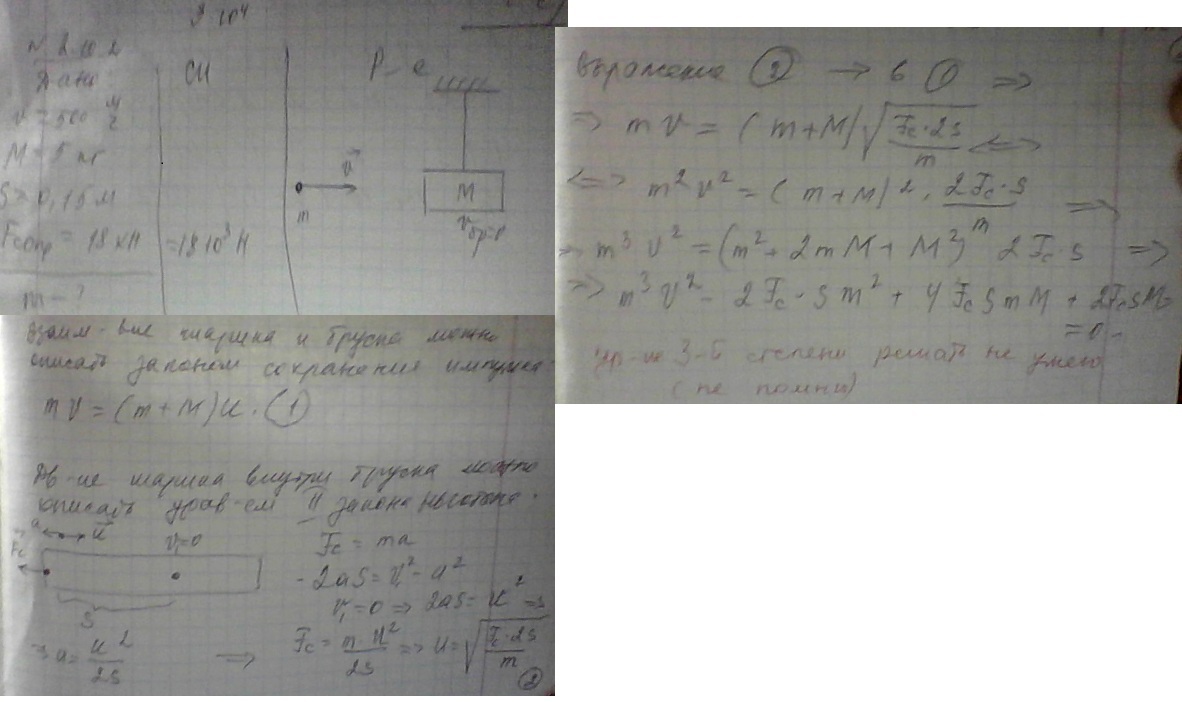 9 10⁴
N 2.10.2
Дано
СИ
Р-е
v = 500 м/с
M = 5 кг
S = 0,15 м
Fсопр = 18 кН
= 18 10³ Н
m - ?
v
m
M
Vбр=0
взаим-вие шарика и бруска можно
описать законом сохранения импульса.
mV = (m + M)U. (1)
Дв-ие шарика внутри бруска можно
описать урав-ем II закона Ньютона.
a
u
V=0
Fc
S
Fc = ma
- 2aS = V₁² - u²
V₁ = 0 => 2aS = u² =>
=> a = u²/2S
=>
Fc = m·u²/2S => u = √(Fc·2S/m)
(2)
выражение (2) → в (1) =>
=> mV = (m+M)√(Fc·2S/m) <=>
<=> m²V² = (m+M)²· 2Fc·S/m =>
=> m³V² = (m² + 2mM + M²) 2Fc·S =>
=> m³V² - 2Fc·Sm² + 4FcSmM + 2FcSM²
= 0 -
ур-ие 3-й степени решать не умею
(не помню)